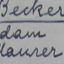 Becker
dam
Maurer